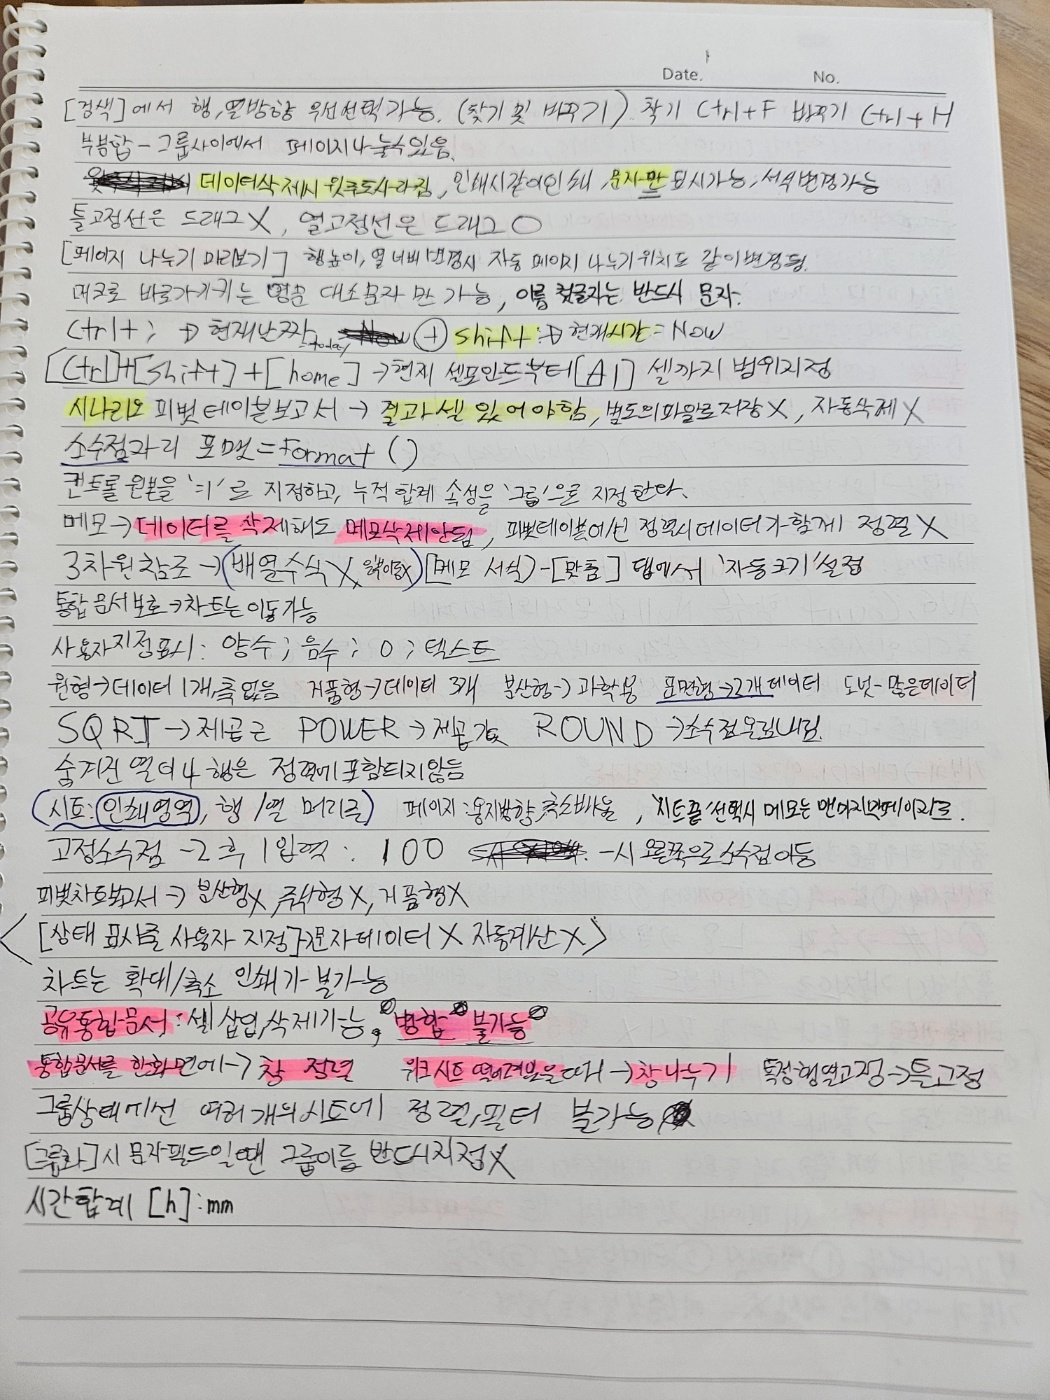 Date. No.
[검색]에서 행,열방향 우선선택가능. (찾기 및 바꾸기) 찾기 Ctrl+F 바꾸기 Ctrl+H
부분합 - 그룹사이에서 페이지나눌수있음.
데이터삭제시 윗주도사라짐, 인쇄시같이인쇄, 문자만 표시가능, 서식변경가능
틀고정선은 드래그X, 열고정선은 드래그O
[페이지 나누기 미리보기] 행높이, 열너비변경시 자동페이지나누기위치도 같이변경됨.
매크로 바로가기키는 영문 대소문자만 가능, 이름 첫글자는 반드시 문자.
Ctrl+; → 현재날짜 today + Shift → 현재시간 = Now
[Ctrl]+[Shift]+[home] → 현재 셀포인트부터[A1] 셀까지 범위지정
시나리오 피벗테이블보고서 → 결과셀 있어야함, 별도의파일로저장X, 자동삭제X
소수점자리 포맷 = Format ()
컨트롤 원본을 '=1'로 지정하고, 누적합계 속성을 '그룹'으로 지정한다.
메모 → 데이터를 삭제해도 메모삭제안됨, 피벗테이블에선 정렬시데이터가함께 정렬X
3차원참조 → (배열수식X, ) [메모 서식]-[맞춤] 탭에서 '자동크기'설정
통합문서보호→차트는이동가능
사용자지정표시: 양수; 음수; 0; 텍스트
원형→데이터 1개,축없음 거품형→데이터 3개 분산형→과학용 표면형→2개데이터 도넛-많은데이터
SQRT → 제곱근 POWER → 제곱값 ROUND → 소수점올림내림
숨겨진 열이나 행은 정렬에포함되지않음
(시트: 인쇄영역, 행/열 머리글) 페이지:용지방향,축소배율, '시트끝'선택시 메모는 맨마지막페이지로.
고정소수점 -2 후 1입력 : 100 -시 오른쪽으로소수점이동
피벗차트보고서 → 분산형X, 주식형X, 거품형X
<[상태 표시줄 사용자 지정]→문자데이터X 자동계산X>
차트는 확대/축소 인쇄가 불가능
공유통합문서: 셀 삽입,삭제가능, 병합 불가능
통합문서를 한화면에→창 정렬 워크시트 여러개보을때→창나누기 특정행열고정→틀고정
그룹상태에선 여러개의시트에 정렬,필터 불가능
[그룹화]시 문자필드일땐 그룹이름 반드시지정X
시간합계 [h]:mm